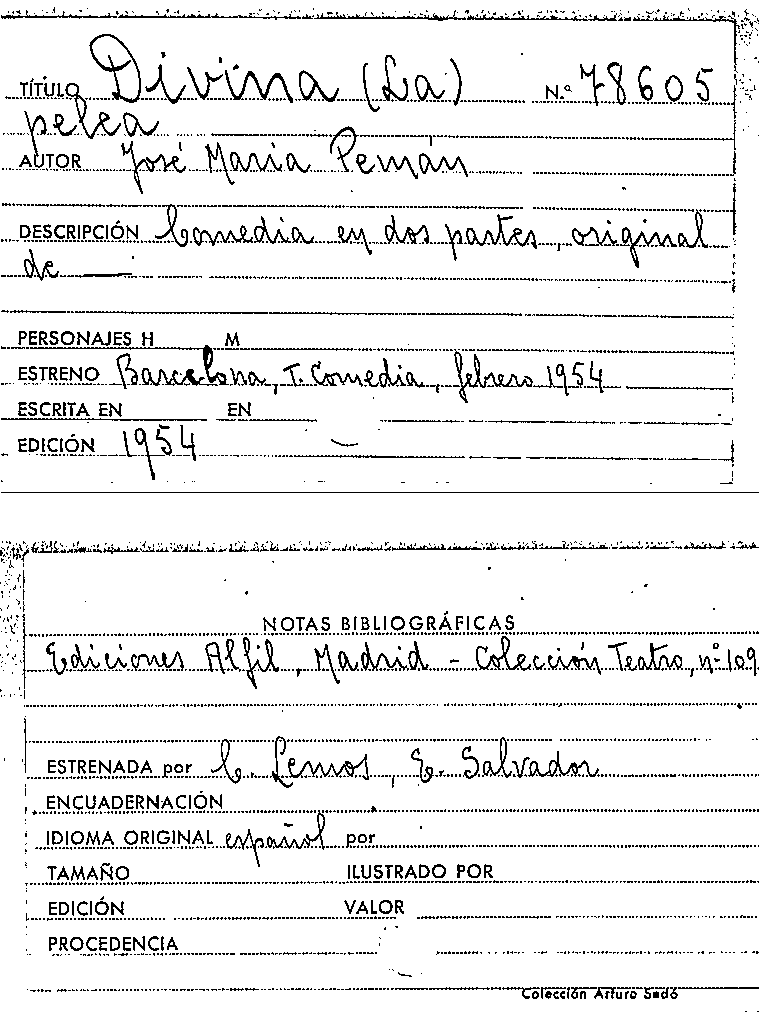 TÍTULO Divina (La) N.º 78605
pelea
AUTOR José Maria Pemán
DESCRIPCIÓN Comedia en dos partes, original
de —
PERSONAJES H M
ESTRENO Barcelona, T. Comedia, febrero 1954
ESCRITA EN EN
EDICIÓN 1954
NOTAS BIBLIOGRÁFICAS
Ediciones Alfil, Madrid - Colección Teatro, nº 109
ESTRENADA por C. Lemos, E. Salvador
ENCUADERNACIÓN
IDIOMA ORIGINAL español por
TAMAÑO ILUSTRADO POR
EDICIÓN VALOR
PROCEDENCIA
Colección Arturo Sedó